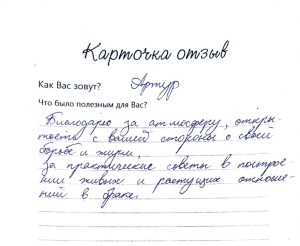 Карточка отзыв
Как Вас зовут? Артур
Что было полезным для Вас?
Благодарю за атмосферу, откры-
тость с вашей стороны о своей
борьбе и жизни,
за практические советы в построе-
нии живых и растущих отноше-
ний в браке.